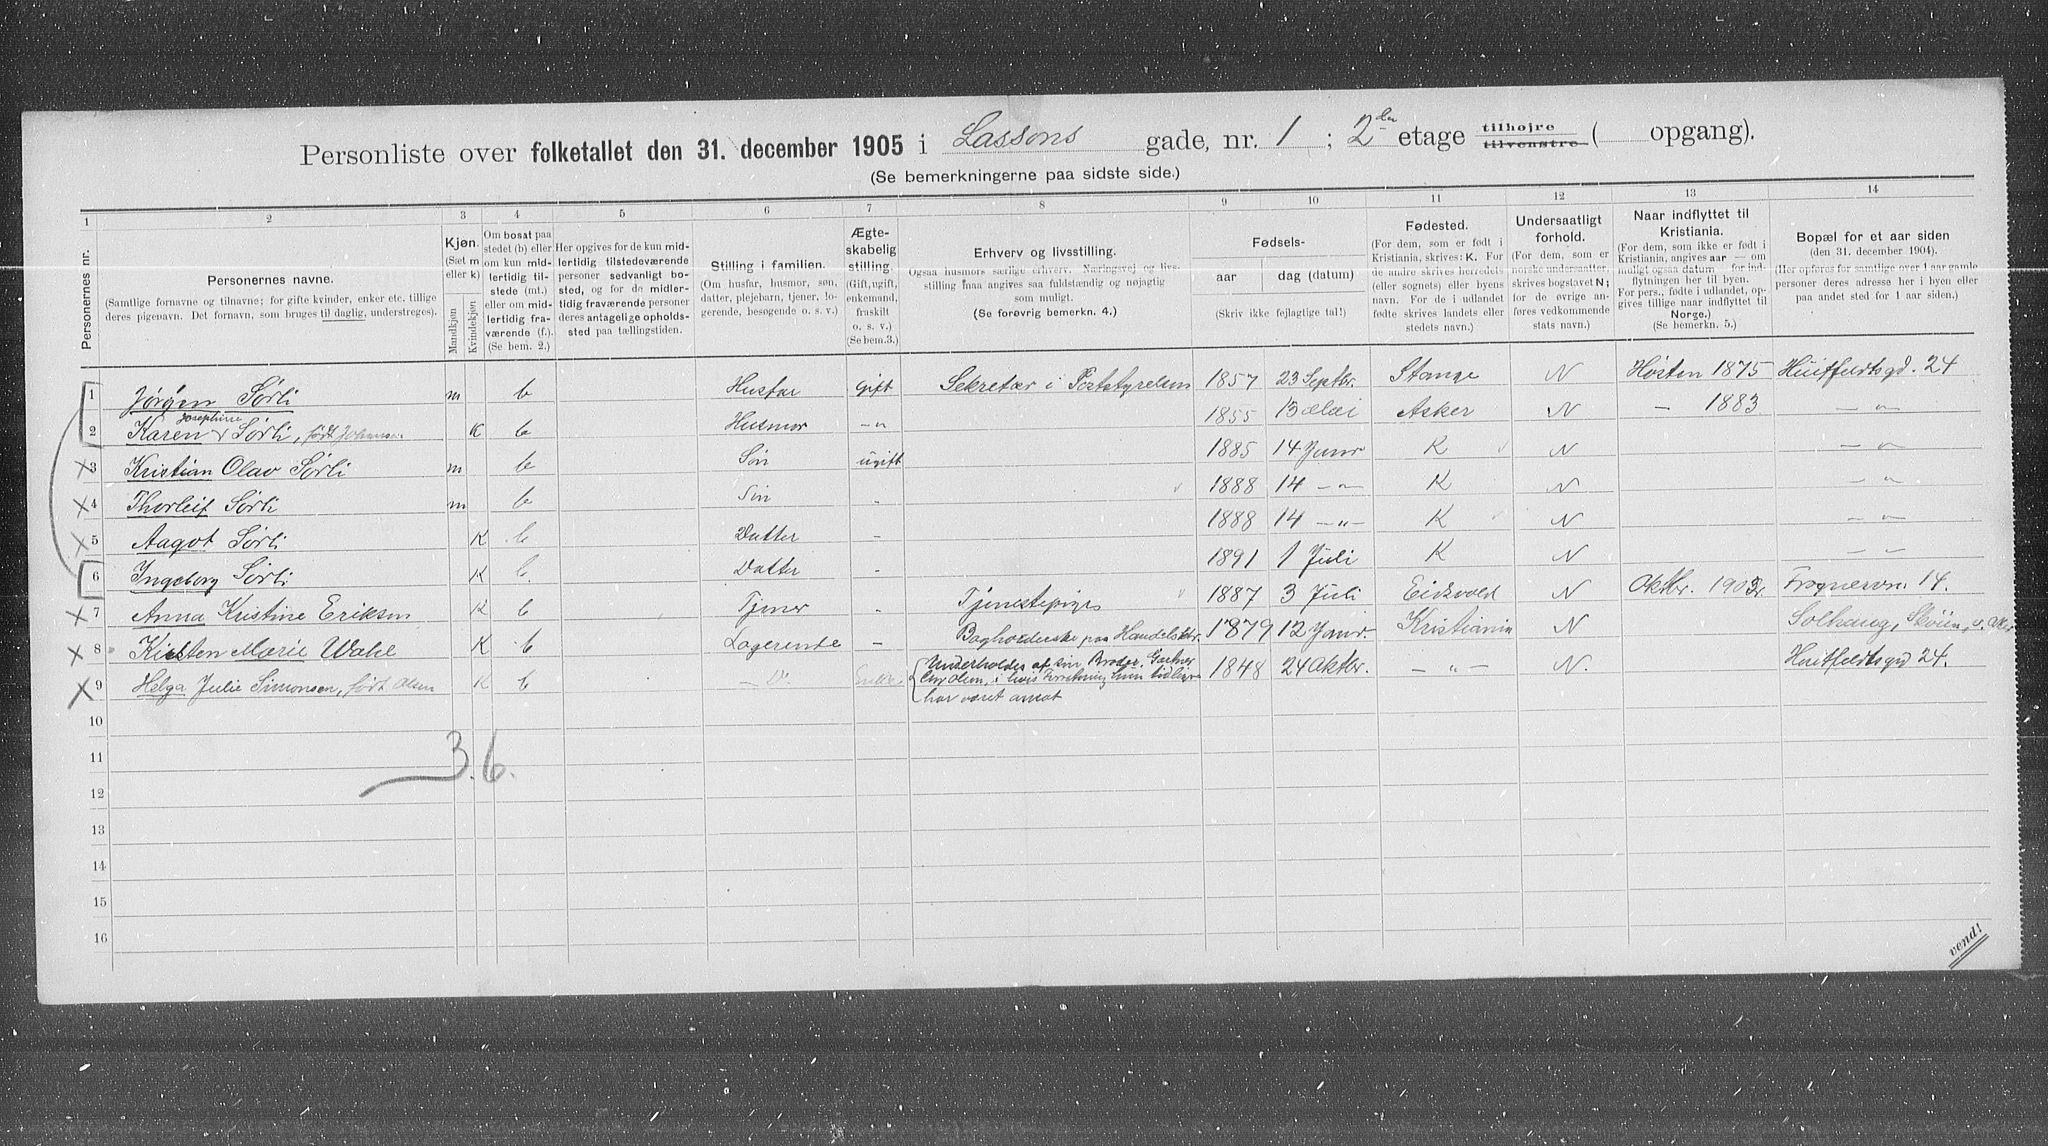 Personliste over folketallet den 31. december 1905 i Lassons gade, nr. 1 ; 2den etage tilhøjre tilvenstre ( opgang).
(Se bemerkningerne paa sidste side.)
1 2 3 4 5 6 7 8 9 10 11 12 13 14
Personernes nr.
Personernes navne.
(Samtlige fornavne og tilnavne; for gifte kvinder, enker etc. tillige deres pigenavn. Det fornavn, som bruges til daglig, understreges).
Kjøn.
(Sæt m eller k)
Mandkjøn
Kvindekjøn
Om bosat paa stedet (b) eller om kun midlertidig tilstede (mt.) eller om midlertidig fraværende (f.). (Se bem. 2.)
Her opgives for de kun midlertidig tilstedeværende personer sedvanligt bosted, og for de midlertidig fraværende personer deres antagelige opholdssted paa tællingstiden.
Stilling i familien.
(Om husfar, husmor, søn, datter, plejebarn, tjener, logerende, besøgende o. s. v.)
Ægteskabelig stilling.
(Gift, ugift, enkemand, fraskilt o. s. v.)
(Se bem.3.)
Erhverv og livsstilling.
Ogsaa husmors særlige erhverv. Næringsvej og livsstilling maa angives saa fuldstændig og nøjagtig som muligt.
(Se forøvrig bemerkn. 4.)
Fødsels-
aar
dag (datum)
(Skriv ikke fejlagtige tal!)
Fødested.
(For dem, som er født i Kristiania, skrives: K. For de andre skrives herredets (eller sognets) eller byens navn. For de i udlandet fødte skrives landets eller stedets navn.)
Undersaatligt forhold.
(For dem, som er norske undersaatter, skrives bogstavet N; for de øvrige anføres vedkommende stats navn.)
Naar indflyttet til Kristiania.
(For dem, som ikke er født i Kristiania, angives aar — om muligt ogsaa datum — for indflytningen her til byen. For pers., fødte i udlandet, opgives tillige naar indflyttet til Norge.)
(Se bemerkn. 5.)
Bopæl for et aar siden
(den 31. december 1904).
(Her opføres for samtlige over 1 aar gamle personer deres adresse her i byen eller paa andet sted for 1 aar siden.)
1 Jørgen Sørli m b Husfar Gift Sekretær i Poststyrelsen 1857 23 Septbr. Stange N Høsten 1875 Huitfeldtsgd. 24
2 Karen Josephine Sørli, født Johansen K b Husmor -"- 1855 13 Mai Asker N - 1883 -"-
3 Kristian Olav Sørli m b Søn ugift 1885 14 Janr K N -"-
4 Thorleif Sørli m b Søn - 1888 14 -"- K N -"-
5 Aagot Sørli K b Datter - 1888 14 -"- K N -"-
6 Ingeborg Sørli K b Datter - 1891 1 Juli K N -"-
7 Anna Kristine Eriksen K b Tjener - Tjenestepige 1887 3 Juli Eidsvold N Oktbr. 1903 Frognervn. 14.
8 Kirsten Marie Wahl K b Logerende - Bogholderske paa Handelsktr. 1879 12 Janr. Kristiania N Solhaug, Skøien, v. Akr
9 Helga Julie Simonsen, født Olsen K b -"- Enke Underholdes af sin Broder, Gartner Olsen, i hvis Forretning hun tidligere har været ansat 1848 24 Oktbr. -"- N. Huitfeldtsgd 24.
10
11
3. 6.
12
13
14
15
16
vend!